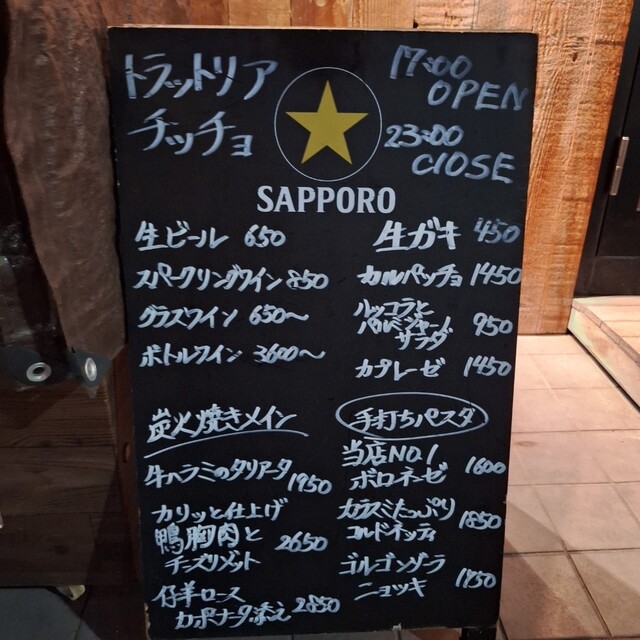 トラットリア
チッチョ
17:00
OPEN
23:00
ClOSE
SAPPORO
生ビール 650
スパークリングワイン 850
グラスワイン 650〜
ボトルワイン 3600〜
生ガキ 450
カルパッチョ 1450
ルッコラと
パルミジャーノ
サラダ 950
カプレーゼ 1450
炭火焼きメイン
牛ハラミのタリアータ 1950
カリッと仕上げ
鴨胸肉と
チーズリゾット 2650
仔羊ロース
カポナータ添え 2850
手打ちパスタ
当店NO.1
ボロネーゼ 1600
カラスミたっぷり
コルドネッティ 1850
ゴルゴンゾーラ
ニョッキ